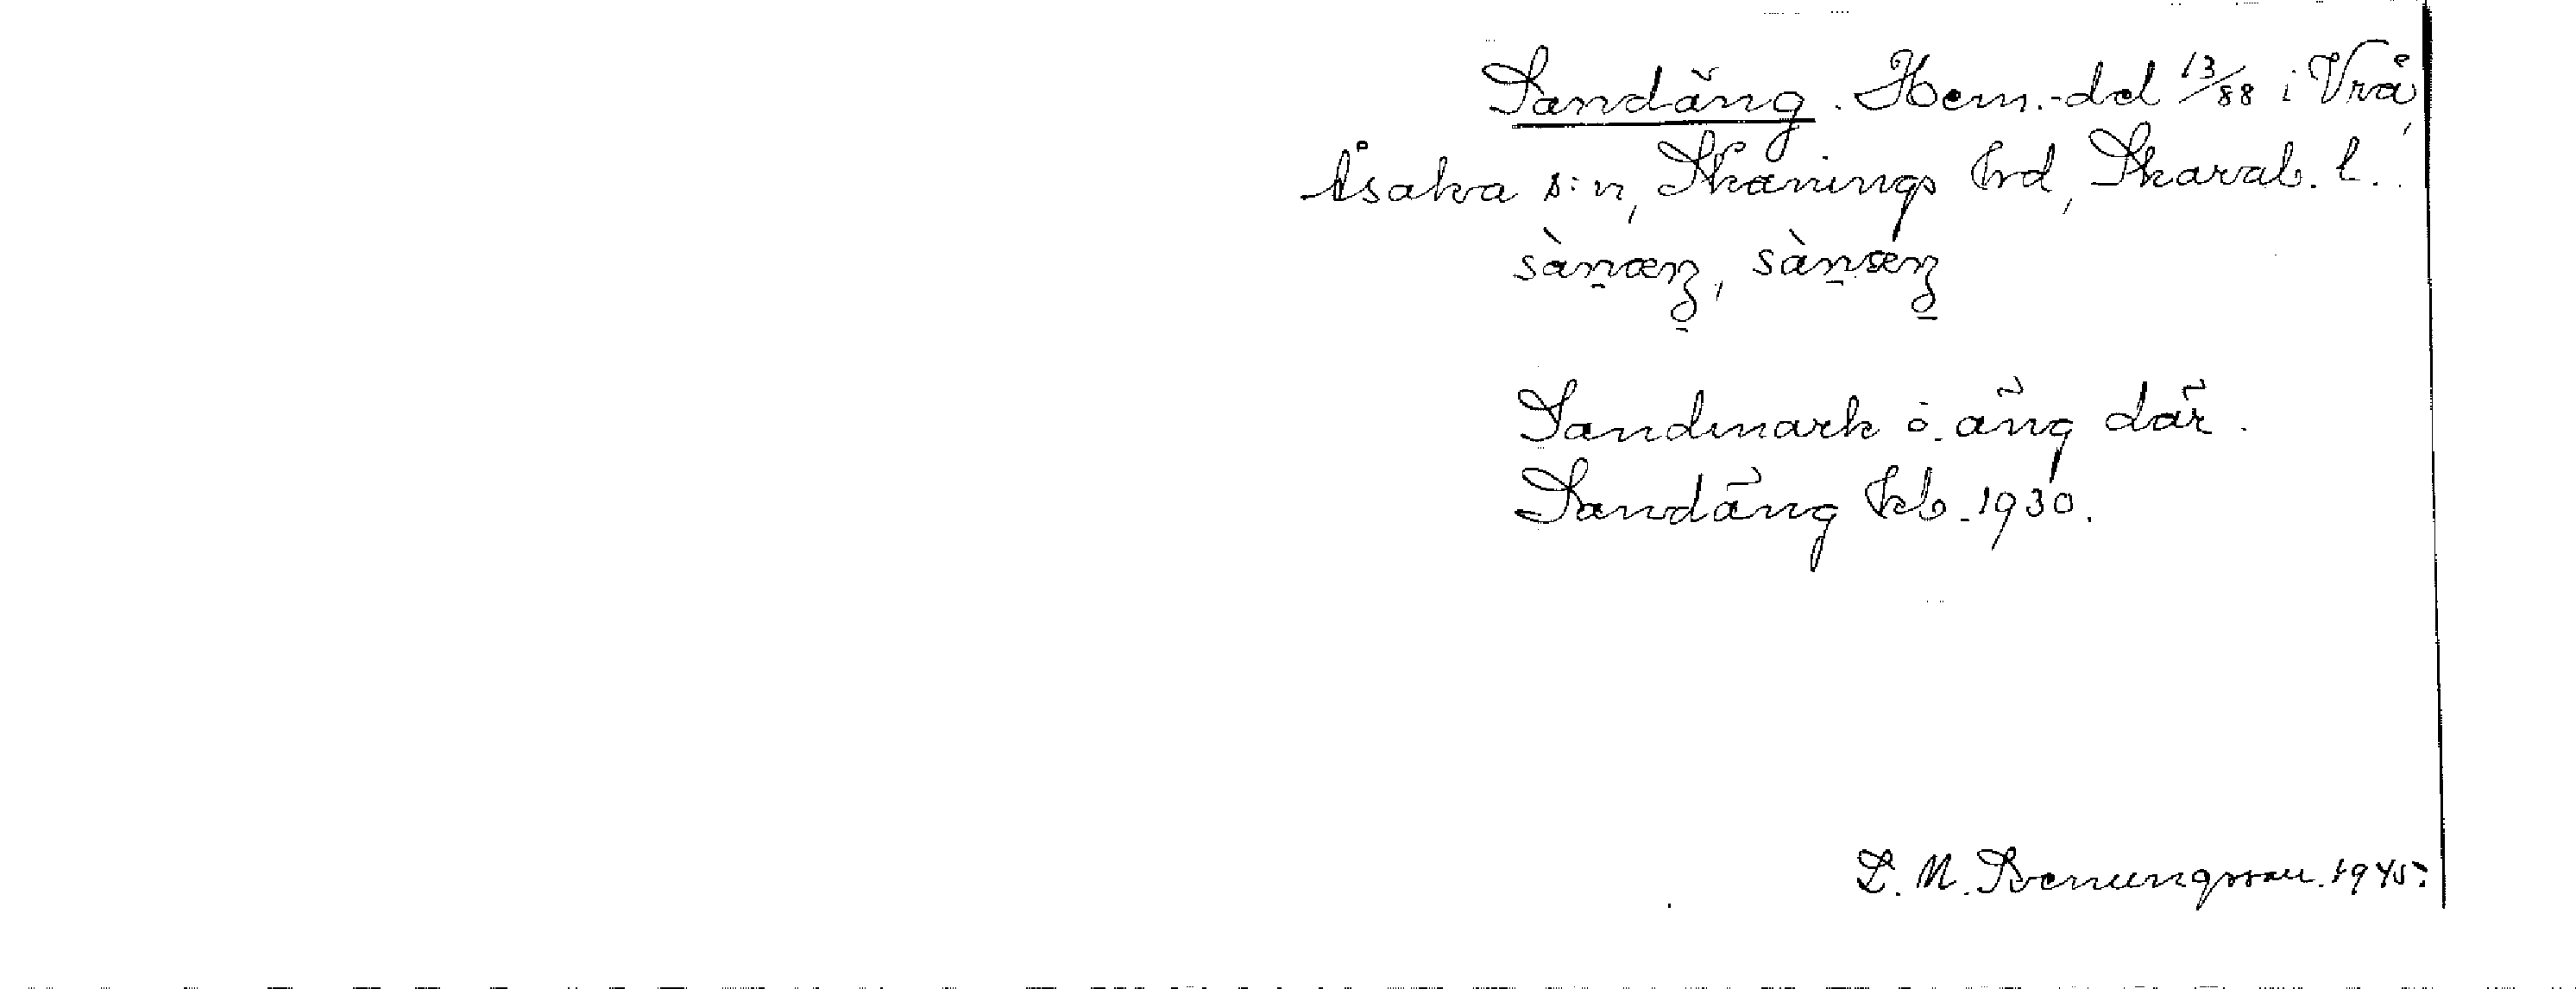 Sandäng. Hem.-del 13/88 i Vrå,
Åsaka s:n, Skånings hrd, Skarab. l.
sàn̠æŋ̠, sàn̠sæŋ̠
Sandmark o. äng där.
Sandäng kb. 1930.
L. M. Svenungsson. 1945.